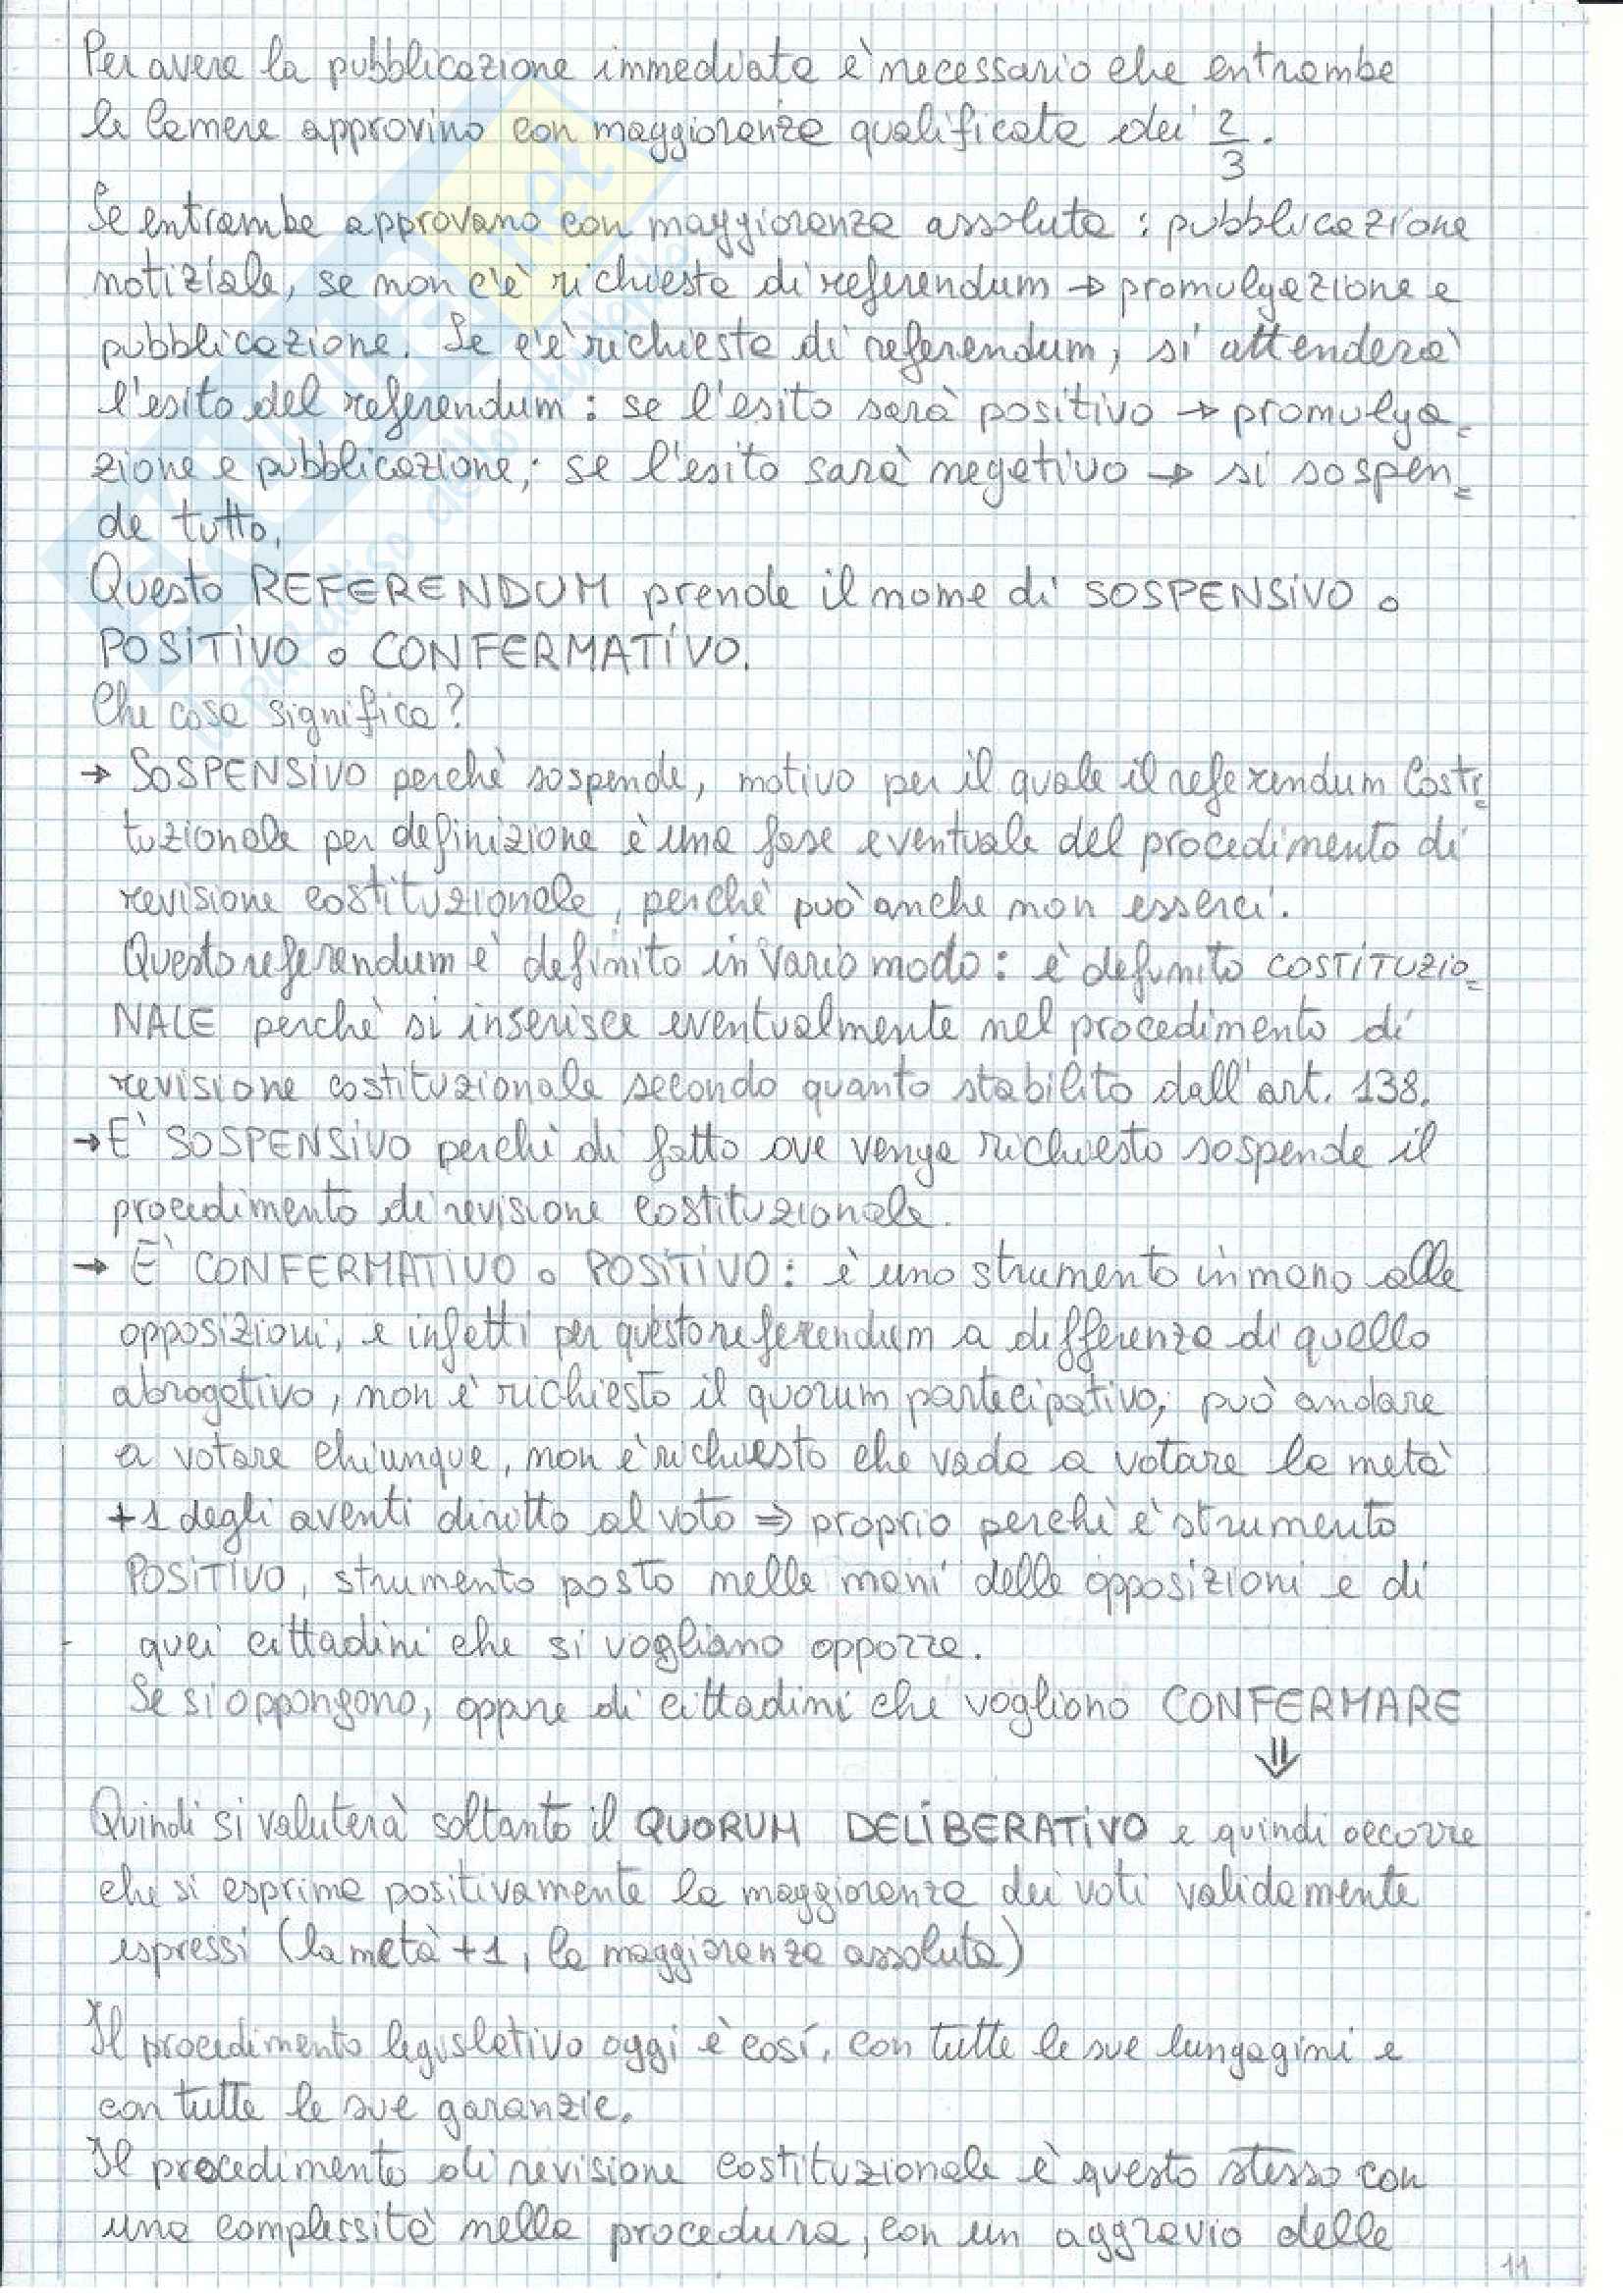 Per avere la pubblicazione immediata è necessario che entrambe
le Camere approvino con maggioranza qualificata dei 2/3.
Se entrambe approvano con maggioranza assoluta : pubblicazione
notiziale, se non c'è richiesta di referendum → promulgazione e
pubblicazione. Se c'è richiesta di referendum, si attenderà
l'esito del referendum : se l'esito sarà positivo → promulga=
zione e pubblicazione; se l'esito sarà negativo → si sospen=
de tutto.
Questo REFERENDUM prende il nome di SOSPENSIVO o
POSITIVO o CONFERMATIVO.
Che cosa significa?
→ SOSPENSIVO perchè sospende, motivo per il quale il referendum Costi=
tuzionale per definizione è una fase eventuale del procedimento di
revisione costituzionale, perchè può anche non esserci.
Questo referendum è definito in vario modo : è definito COSTITUZIO=
NALE perchè si inserisce eventualmente nel procedimento di
revisione costituzionale secondo quanto stabilito dall'art. 138.
→ E' SOSPENSIVO perchè di fatto ove venga richiesto sospende il
procedimento di revisione costituzionale.
→ E' CONFERMATIVO o POSITIVO : è uno strumento in mano alle
opposizioni, e infatti per questo referendum a differenza di quello
abrogativo, non è richiesto il quorum partecipativo; può andare
a votare chiunque, non è richiesto che vada a votare la metà
+1 degli aventi diritto al voto ⇒ proprio perchè è strumento
POSITIVO, strumento posto nelle mani delle opposizioni e di
quei cittadini che si vogliano opporre.
Se si oppongono, oppure di cittadini che vogliono CONFERMARE
⇓
Quindi si valuterà soltanto il QUORUM DELIBERATIVO e quindi occorre
che si esprima positivamente la maggioranza dei voti validamente
espressi (la metà +1, la maggioranza assoluta)
Il procedimento legislativo oggi è così, con tutte le sue lungagini e
con tutte le sue garanzie.
Il procedimento di revisione costituzionale è questo stesso con
una complessità nella procedura, con un aggravio delle
11